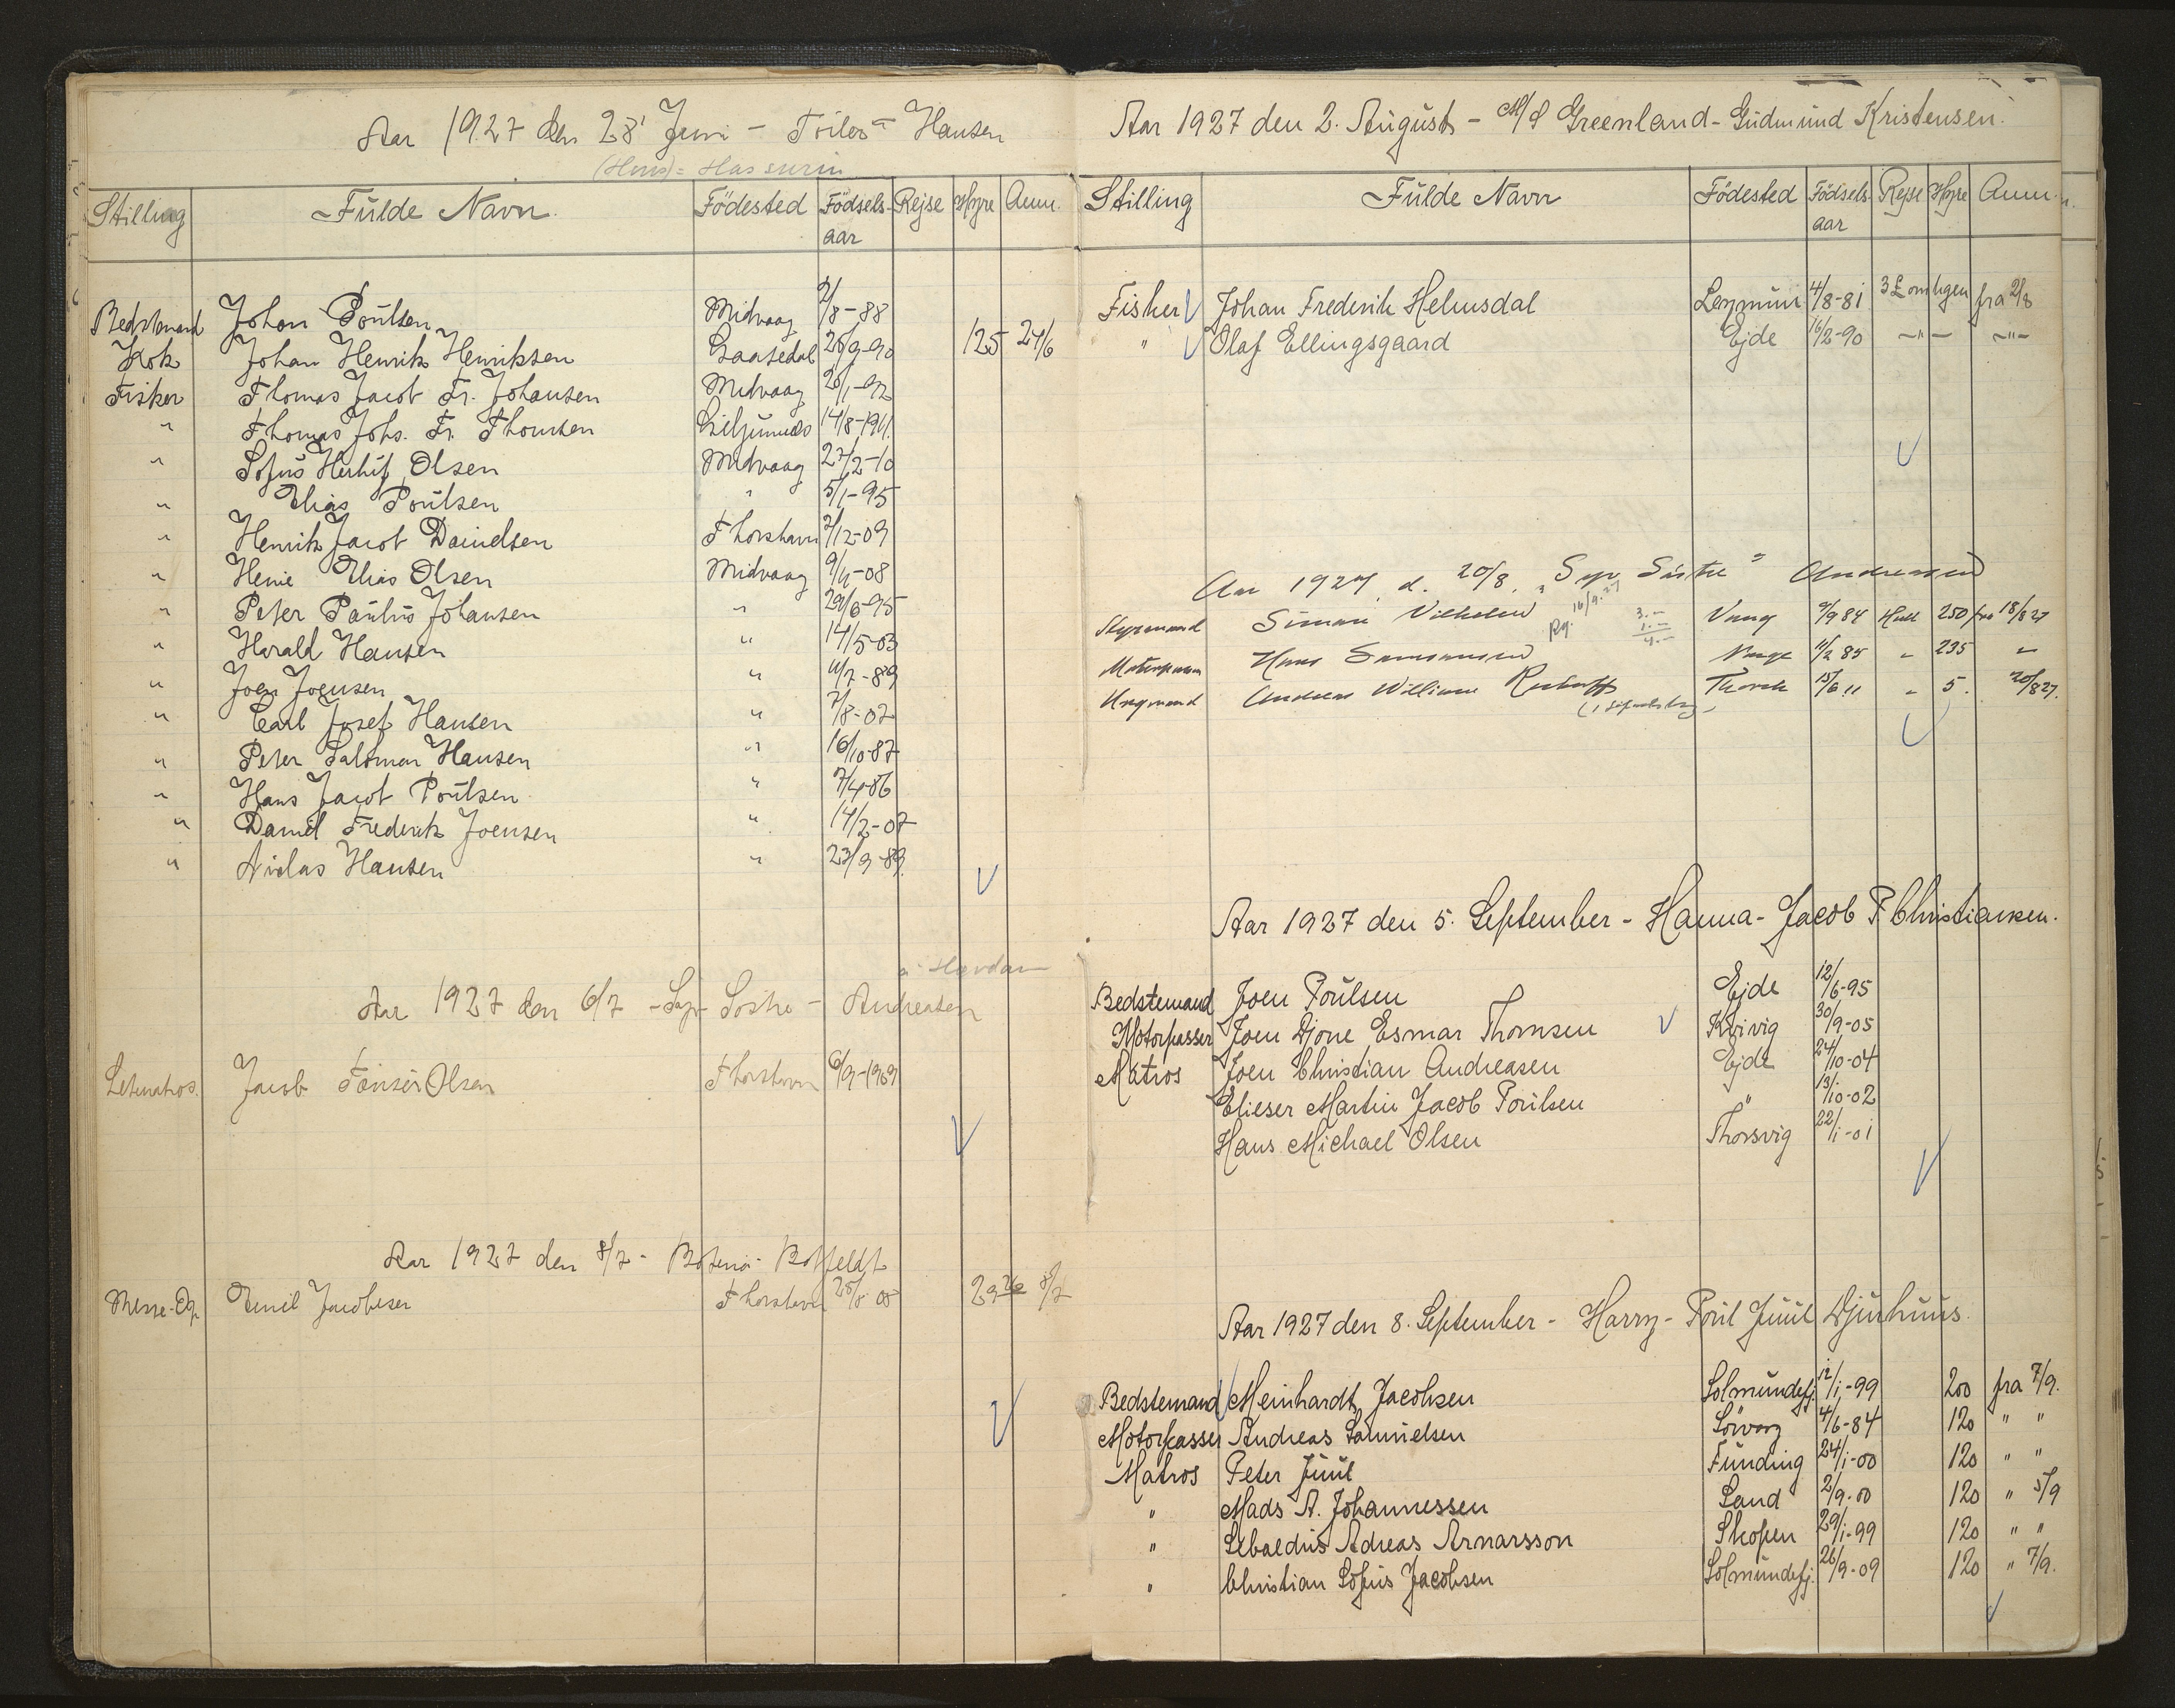 Aar 1927 den 28' Juni - Toiler - Hansen
Stilling Fulde Navn. Födested Födsels-aar Rejse Hyre Anm.
Bedstemand Johan Poulsen Midvaag 2/8-88
Kok Johan Henrik Henriksen Gaasedal 26/9-90 125 24/6
Fisker Thomas Jacob Fr. Johansen Midvaag 28/1-92
" Thomas Johs. Fr. Thomsen 14/8-1911.
" Sofus Herluf Olsen Midvaag 27/2-10
" Elias Poulsen " 5/1-95
" Henrik Jacob Danielsen Thorshavn 2/12-09
" Elias Olsen Midvaag 9/11-08
" Peter Paulus Johansen " 29/6-95
" Harald Hansen " 14/5-03
" Joen Joensen " 11/7-89
" Carl Josef Hansen " 7/8-02
" Peter Salomon Hansen " 16/10-87
" Hans Jacob Poulsen " 7/4-86
" Daniel Frederik Joensen " 14/2-07
" Niclas Hansen " 23/9-89.
Aar 1927 den 6/7 - Syv Söstre - Andreasen
Letmatros. Jacob Olsen Thorshavn 6/9-1909
Aar 1927 den 8/7 - Botnia - Botfeldt
Emil Jacobsen Thorshavn 8/7
Aar 1927 den 2. August - M/S Greenland - Gudmund Kristensen.
Stilling Fulde Navn Födested Födsels-aar Rejse Hyre Anm.
Fisher Johan Frederik Helmsdal Leynum 4/8-81 3£ om Ugen fra 2/8
" Olaf Ellingsgaard Ejde 16/2-90 -"- -"-
Aar 1927 d. 20/8. "Syv Söstre" Andreasen
Styrmand Simun Vilhelm Vaag 9/9 84 Hull 250 fra 18/8 27
Motorpasser Hans Samuelsen 11/2 85 " 235 "
Ungmand Andreas William Thorsh 15/6 11 " 5. 20/8 27.
Aar 1927 den 5. September - Hanna - Jacob P. Christiansen.
Bedstemand Joen Poulsen Ejde 12/6-95
Motorpasser Joen Djone Esmar Thomsen Kvivig 30/9-05
Matros Joen Christian Andreasen Ejde 24/10-04
Elieser Martin Jacob Poulsen " 13/10-02
Hans Michael Olsen Thorsvig 22/1-01
Aar 1927 den 8. September - Harry - Poul Juul Djurhuus.
Bedstemand Meinhardt Jacobsen Solmundefj. 12/1-99 200 fra 7/9.
Motorpasser Andreas Samuelsen Sörvaag 4/6-84 120 " "
Matros Peter Juul Funding 24/1-00 120 " "
" Mads A. Johannessen Sand 2/9-00 120 " 5/9
" Sebaldus Adreas Arnarsson Skopen 29/1-99 120 " "
" Christian Sofus Jacobsen Solmundefj. 26/9-09 120 " 7/9.